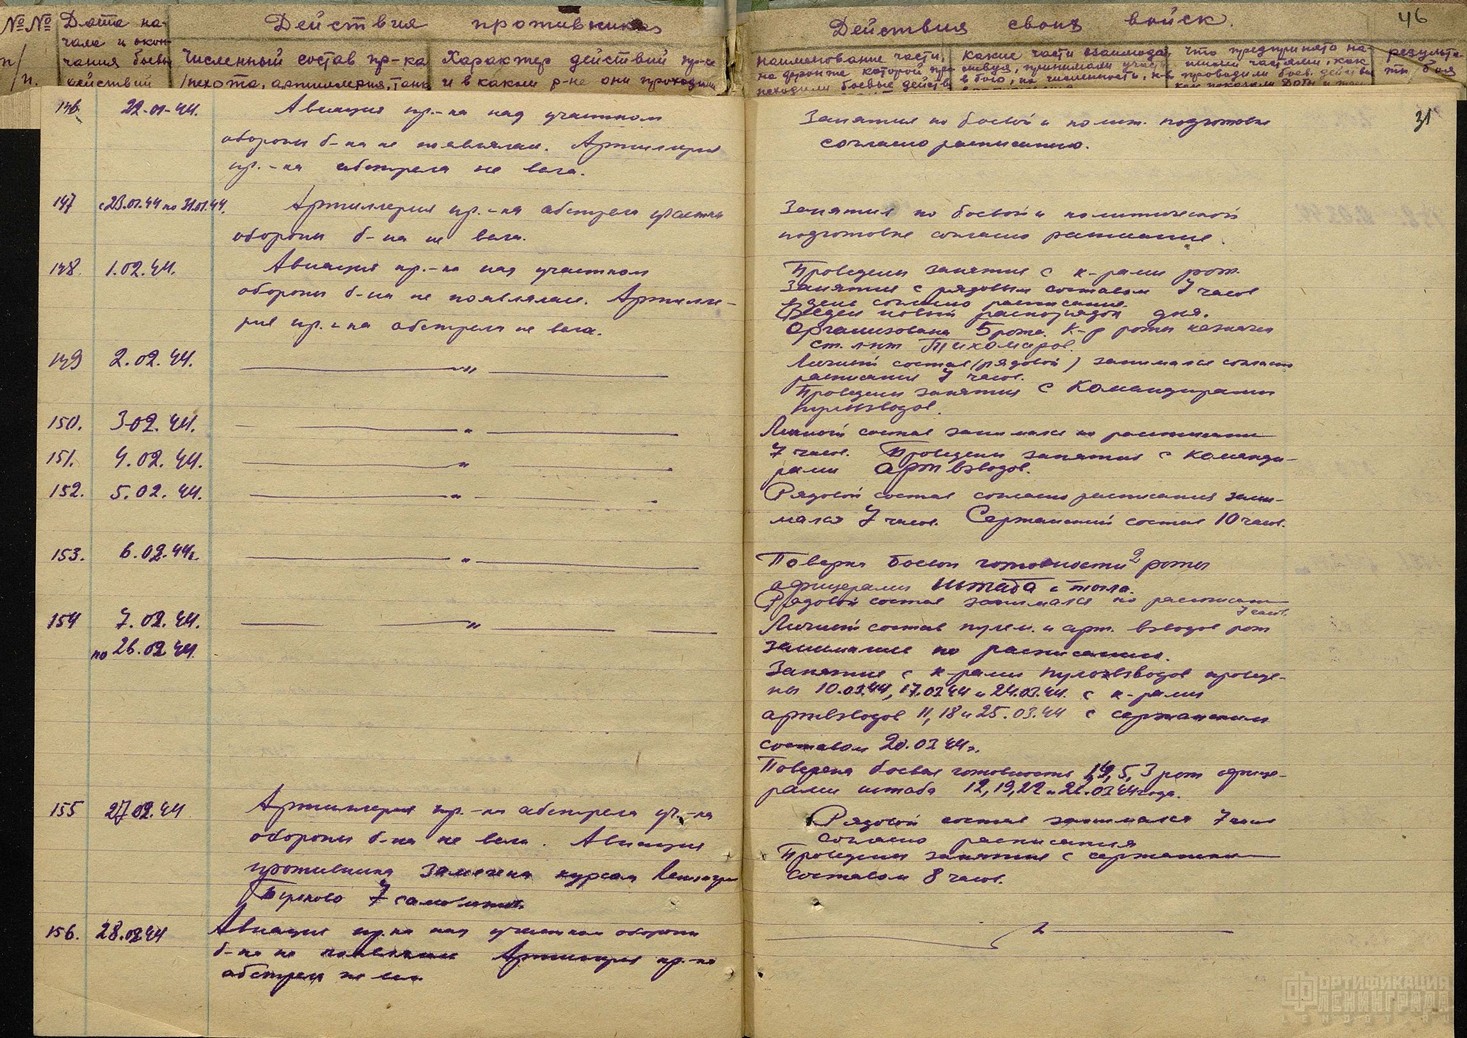 №№ п/п.
Дата на-
чала и окон-
чания боев.
действий
Действия противника
Численный состав пр-ка
/пехота, артиллерия, танк
Характер действий пр-ка
и в каком р-не они проходили
Действия своих войск.
наименование части,
на фронте которой про-
исходили боевые действ.
какие части взаимодей
ствуя, принимали участ
в бою, их численность, к-в
что предпринято на-
шими частями, как
проводили боев. действ
результа-
ты боя
46
31
146. 22-01-44. Авиация пр.-ка над участком
обороны б-на не появлялась. Артиллерия
пр.-ка обстрела не вела.
Занятия по боевой и полит. подготовке
согласно расписанию.
147 с 23.01.44 по 31.01.44. Артиллерия пр.-ка обстрела участка
обороны б-на не вела.
Занятия по боевой и политической
подготовке согласно расписания.
148. 1.02.44. Авиация пр.-ка над участком
обороны б-на не появлялась. Артилле-
рия пр.-ка обстрела не вела.
Проведены занятия с к-рами рот.
Занятия с рядовым составом 7 часов
в день согласно расписания.
Введен новый распорядок дня.
Организована 5 рота. К-р роты назначен
ст. л-нт Тихомиров.
149 2.02.44. — " —
Личный состав (рядовой) занимался согласно
расписания 7 часов.
Проведены занятия с командирами
пульвзводов.
150. 3-02.44. — " —
Личный состав занимался по расписанию
7 часов. Проведены занятия с команди-
рами артвзводов.
151. 4.02.44. — " —
152. 5.02.44. — " —
Рядовой состав согласно расписания зани-
мался 7 часов. Сержантский состав 10 часов.
153. 6.02.44г. — " —
Поверка боевой готовности 2 роты
офицерами штаба и тыла.
Рядовой состав занимался по расписанию
7 часов.
154 7.02.44. — " —
по 26.02.44.
Личный состав пулем. и арт. взводов рот
занимались по расписанию.
Занятия с к-рами пульвзводов проведе-
ны 10.02.44, 17.02.44 и 24.02.44. с к-рами
артвзводов 11, 18 и 25.02.44 с сержантским
составом 20.02.44г.
Поверена боевая готовность 1, 4, 5, 3 рот офице-
рами штаба 12, 19, 22 и 26.02.44 года.
155 27.02.44 Артиллерия пр.-ка обстрела уч.-ка
обороны б-на не вела. Авиация
противника замечена курсом
7 самолетов.
Рядовой состав занимался 7 часов
согласно расписания
Проведены занятия с сержантским
составом 8 часов.
156. 28.02.44 Авиация пр.ка над участком обороны
б-на не появлялась Артиллерия пр.-ка
обстрела не вела
— " —
ФОРТИФИКАЦИЯ
ЛЕНИНГРАДА
LENFORT.RU